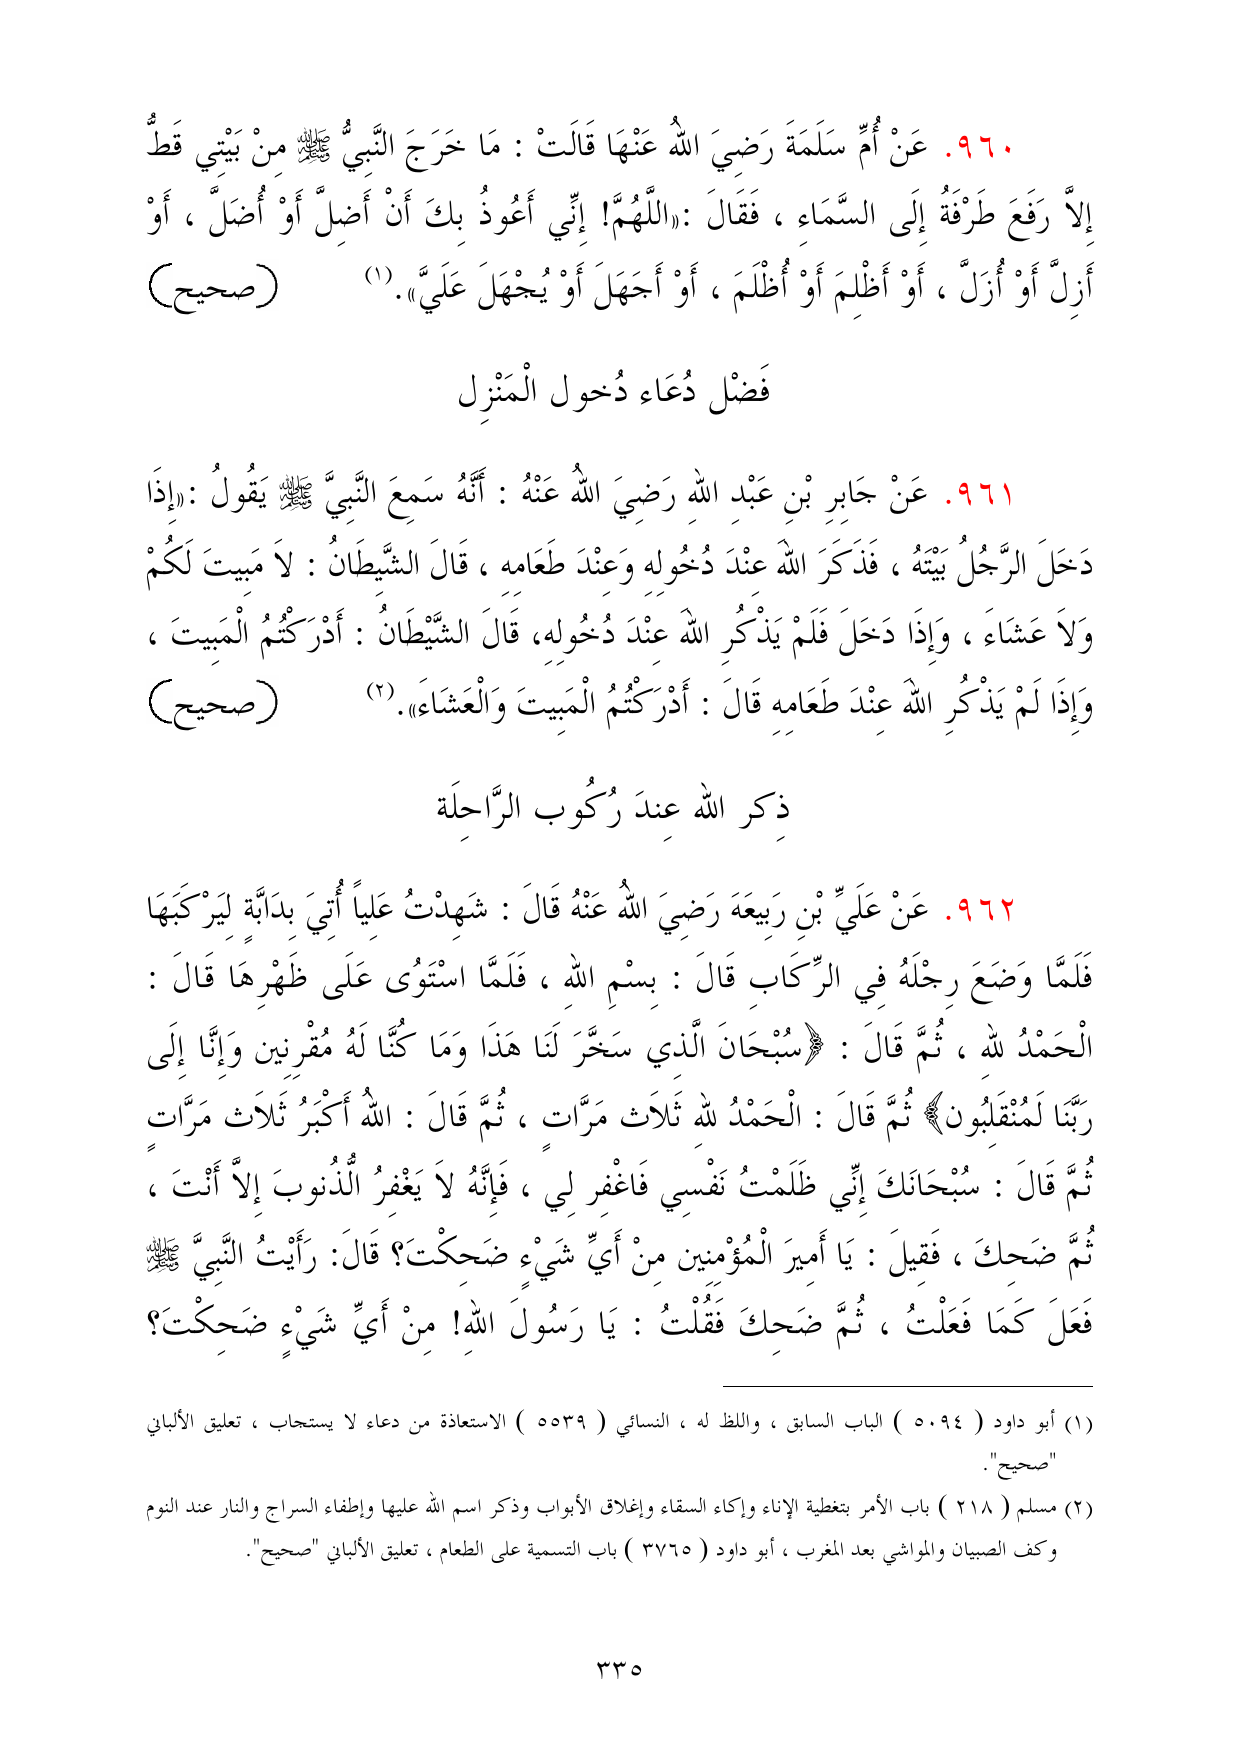 ٩٦٠. عَنْ أُمِّ سَلَمَةَ رَضِيَ اللهُ عَنْهَا قَالَتْ : مَا خَرَجَ النَّبِيُّ ﷺ مِنْ بَيْتِي قَطُّ
إِلاَّ رَفَعَ طَرْفَهُ إِلَى السَّمَاءِ ، فَقَالَ :«اللَّهُمَّ! إِنِّي أَعُوذُ بِكَ أَنْ أَضِلَّ أَوْ أُضَلَّ ، أَوْ
أَزِلَّ أَوْ أُزَلَّ ، أَوْ أَظْلِمَ أَوْ أُظْلَمَ ، أَوْ أَجَهَلَ أَوْ يُجْهَلَ عَلَيَّ».(١) (صحيح)
فَضْل دُعَاء دُخول الْمَنْزِل
٩٦١. عَنْ جَابِرِ بْنِ عَبْدِ اللهِ رَضِيَ اللهُ عَنْهُ : أَنَّهُ سَمِعَ النَّبِيَّ ﷺ يَقُولُ :«إِذَا
دَخَلَ الرَّجُلُ بَيْتَهُ ، فَذَكَرَ اللهَ عِنْدَ دُخُولِهِ وَعِنْدَ طَعَامِهِ ، قَالَ الشَّيِطَانُ : لاَ مَبِيتَ لَكُمْ
وَلاَ عَشَاءَ ، وَإِذَا دَخَلَ فَلَمْ يَذْكُرِ اللهَ عِنْدَ دُخُولِهِ، قَالَ الشَّيْطَانُ : أَدْرَكْتُمُ الْمَبِيتَ ،
وَإِذَا لَمْ يَذْكُرِ اللهَ عِنْدَ طَعَامِهِ قَالَ : أَدْرَكْتُمُ الْمَبِيتَ وَالْعَشَاءَ».(٢) (صحيح)
ذِكر اللهِ عِندَ رُكُوب الرَّاحِلَة
٩٦٢. عَنْ عَلَيِّ بْنِ رَبِيعَهَ رَضِيَ اللهُ عَنْهُ قَالَ : شَهِدْتُ عَلِياً أُتِيَ بِدَابَّةٍ لِيَرْكَبَهَا
فَلَمَّا وَضَعَ رِجْلَهُ فِي الرِّكَابِ قَالَ : بِسْمِ اللهِ ، فَلَمَّا اسْتَوُى عَلَى ظَهْرِهَا قَالَ :
الْحَمْدُ للهِ ، ثُمَّ قَالَ : ﴿سُبْحَانَ الَّذِي سَخَّرَ لَنَا هَذَا وَمَا كُنَّا لَهُ مُقْرِنِين وَإِنَّا إِلَى
رَبَّنَا لَمُنْقَلِبُون﴾ ثُمَّ قَالَ : الْحَمْدُ للهِ ثَلاَث مَرَّاتٍ ، ثُمَّ قَالَ : اللهُ أَكْبَرُ ثَلاَث مَرَّاتٍ
ثُمَّ قَالَ : سُبْحَانَكَ إِنِّي ظَلَمْتُ نَفْسِي فَاغْفِر لِي ، فَإِنَّهُ لاَ يَغْفِرُ الُّذُنوبَ إِلاَّ أَنْتَ ،
ثُمَّ ضَحِكَ ، فَقِيلَ : يَا أَمِيرَ الْمُؤْمِنِين مِنْ أَيِّ شَيْءٍ ضَحِكْتَ؟ قَالَ: رَأَيْتُ النَّبِيَّ ﷺ
فَعَلَ كَمَا فَعَلْتُ ، ثُمَّ ضَحِكَ فَقُلْتُ : يَا رَسُولَ اللهِ! مِنْ أَيِّ شَيْءٍ ضَحِكْتَ؟
(١) أبو داود ( ٥٠٩٤ ) الباب السابق ، واللظ له ، النسائي ( ٥٥٣٩ ) الاستعاذة من دعاء لا يستجاب ، تعليق الألباني
"صحيح".
(٢) مسلم ( ٢١٨ ) باب الأمر بتغطية الإناء وإكاء السقاء وإغلاق الأبواب وذكر اسم الله عليها وإطفاء السراج والنار عند النوم
وكف الصبيان والمواشي بعد المغرب ، أبو داود ( ٣٧٦٥ ) باب التسمية على الطعام ، تعليق الألباني "صحيح".
٣٣٥